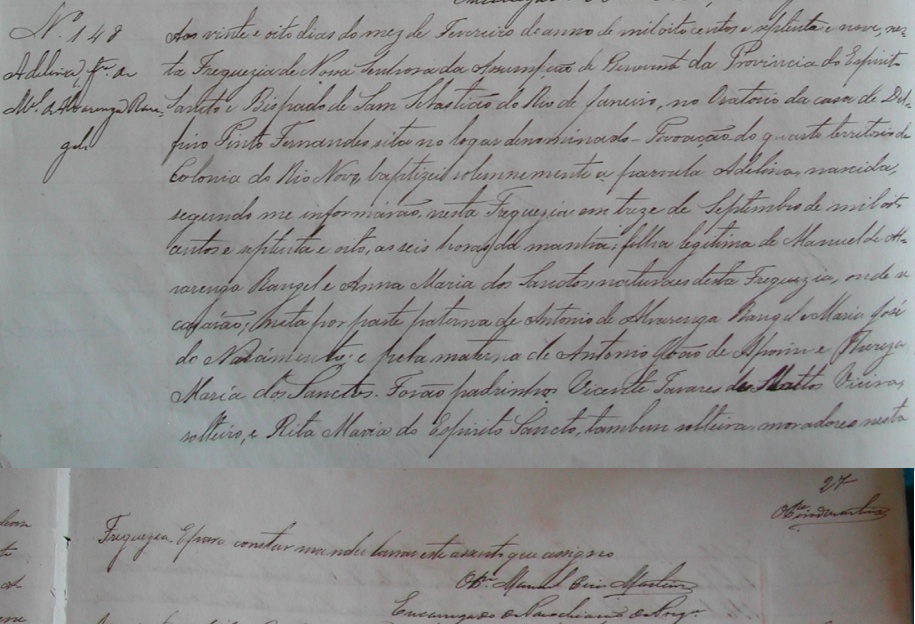 N.º 148
Adelina, fª. de
Mel. de Alvarenga Ran-
gel
Aos vinte e oito dias do mez de Fevereiro do anno de mil oito centos e septenta e nove, nes-
ta Freguezia de Nossa Senhora da Assumpção de Benevente da Provincia do Espirito
Sancto e Bispado de Sam Sebastião do Rio de Janeiro, no Oratorio da casa de Del-
firo Pinto Fernandes, sita no logar denominado - Povoação do quarto territorio da
Colonia do Rio Novo, baptizei solemnemente a parvula Adelina, nascida,
segundo me informárão, nesta Freguezia em treze de Septembro de mil oito
centos e septenta e oito, as seis horas da manhã; filha legitima de Manuel de Al-
varenga Rangel e Anna Maria dos Sanctos, naturaes desta Freguezia, onde se
casárão; Neta por parte paterna de Antonio de Alvarenga Rangel e Maria José
do Nascimento; e pela materna de Antonio João de e Thereza
Maria dos Sanctos. Forão padrinhos Vicente Tavares de Mattos Vieira,
solteiro, e Rita Maria do Espirito Sancto, tambem solteira, moradores nesta
27
Freguezia. E para constar mandei lavrar este assento que assigno
O Manuel Martins
Encarregado